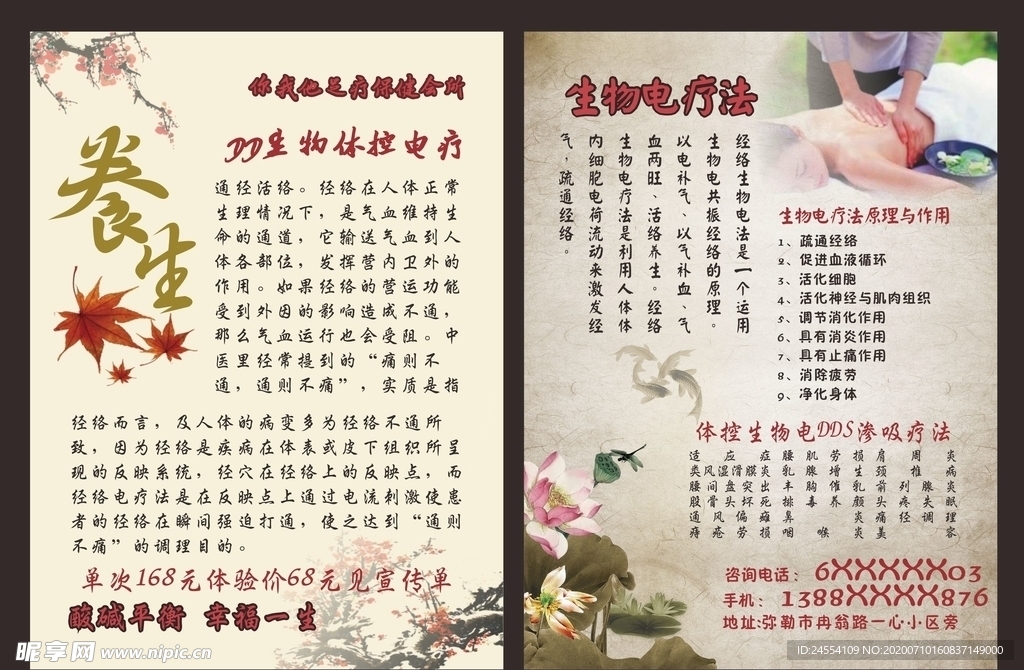 你我他足疗保健会所
养生
DD生物体控电疗
通经活络。经络在人体正常
生理情况下，是气血维持生
命的通道，它输送气血到人
体各部位，发挥营内卫外的
作用。如果经络的营运功能
受到外因的影响造成不通，
那么气血运行也会受阻。中
医里经常提到的“痛则不
通，通则不痛”，实质是指
经络而言，及人体的病变多为经络不通所
致，因为经络是疾病在体表或皮下组织所呈
现的反映系统，经穴在经络上的反映点，而
经络电疗法是在反映点上通过电流刺激使患
者的经络在瞬间强迫打通，使之达到“通则
不痛”的调理目的。
单次168元体验价68元见宣传单
酸碱平衡 幸福一生
昵享网 www.nipic.cn
生物电疗法
经络生物电法是一个运用
生物电共振经络的原理。
以电补气、以气补血、气
血两旺、活络养生。经络
生物电疗法是利用人体体
内细胞电荷流动来激发经
气，疏通经络。
生物电疗法原理与作用
1、疏通经络
2、促进血液循环
3、活化细胞
4、活化神经与肌肉组织
5、调节消化作用
6、具有消炎作用
7、具有止痛作用
8、消除疲劳
9、净化身体
体控生物电DDS渗吸疗法
适应症腰肌劳损肩周炎
类风湿滑膜炎乳腺增生颈椎病
腰间盘突出丰胸催乳前列腺炎
股骨头坏死排毒养颜头疼失眠
通风偏瘫鼻炎痛经调理
痔疮劳损咽喉炎美容
咨询电话：6XXXXXX03
手机：1388XXXX876
地址:弥勒市冉翁路一心小区旁
ID:24554109 NO:20200710160837149000